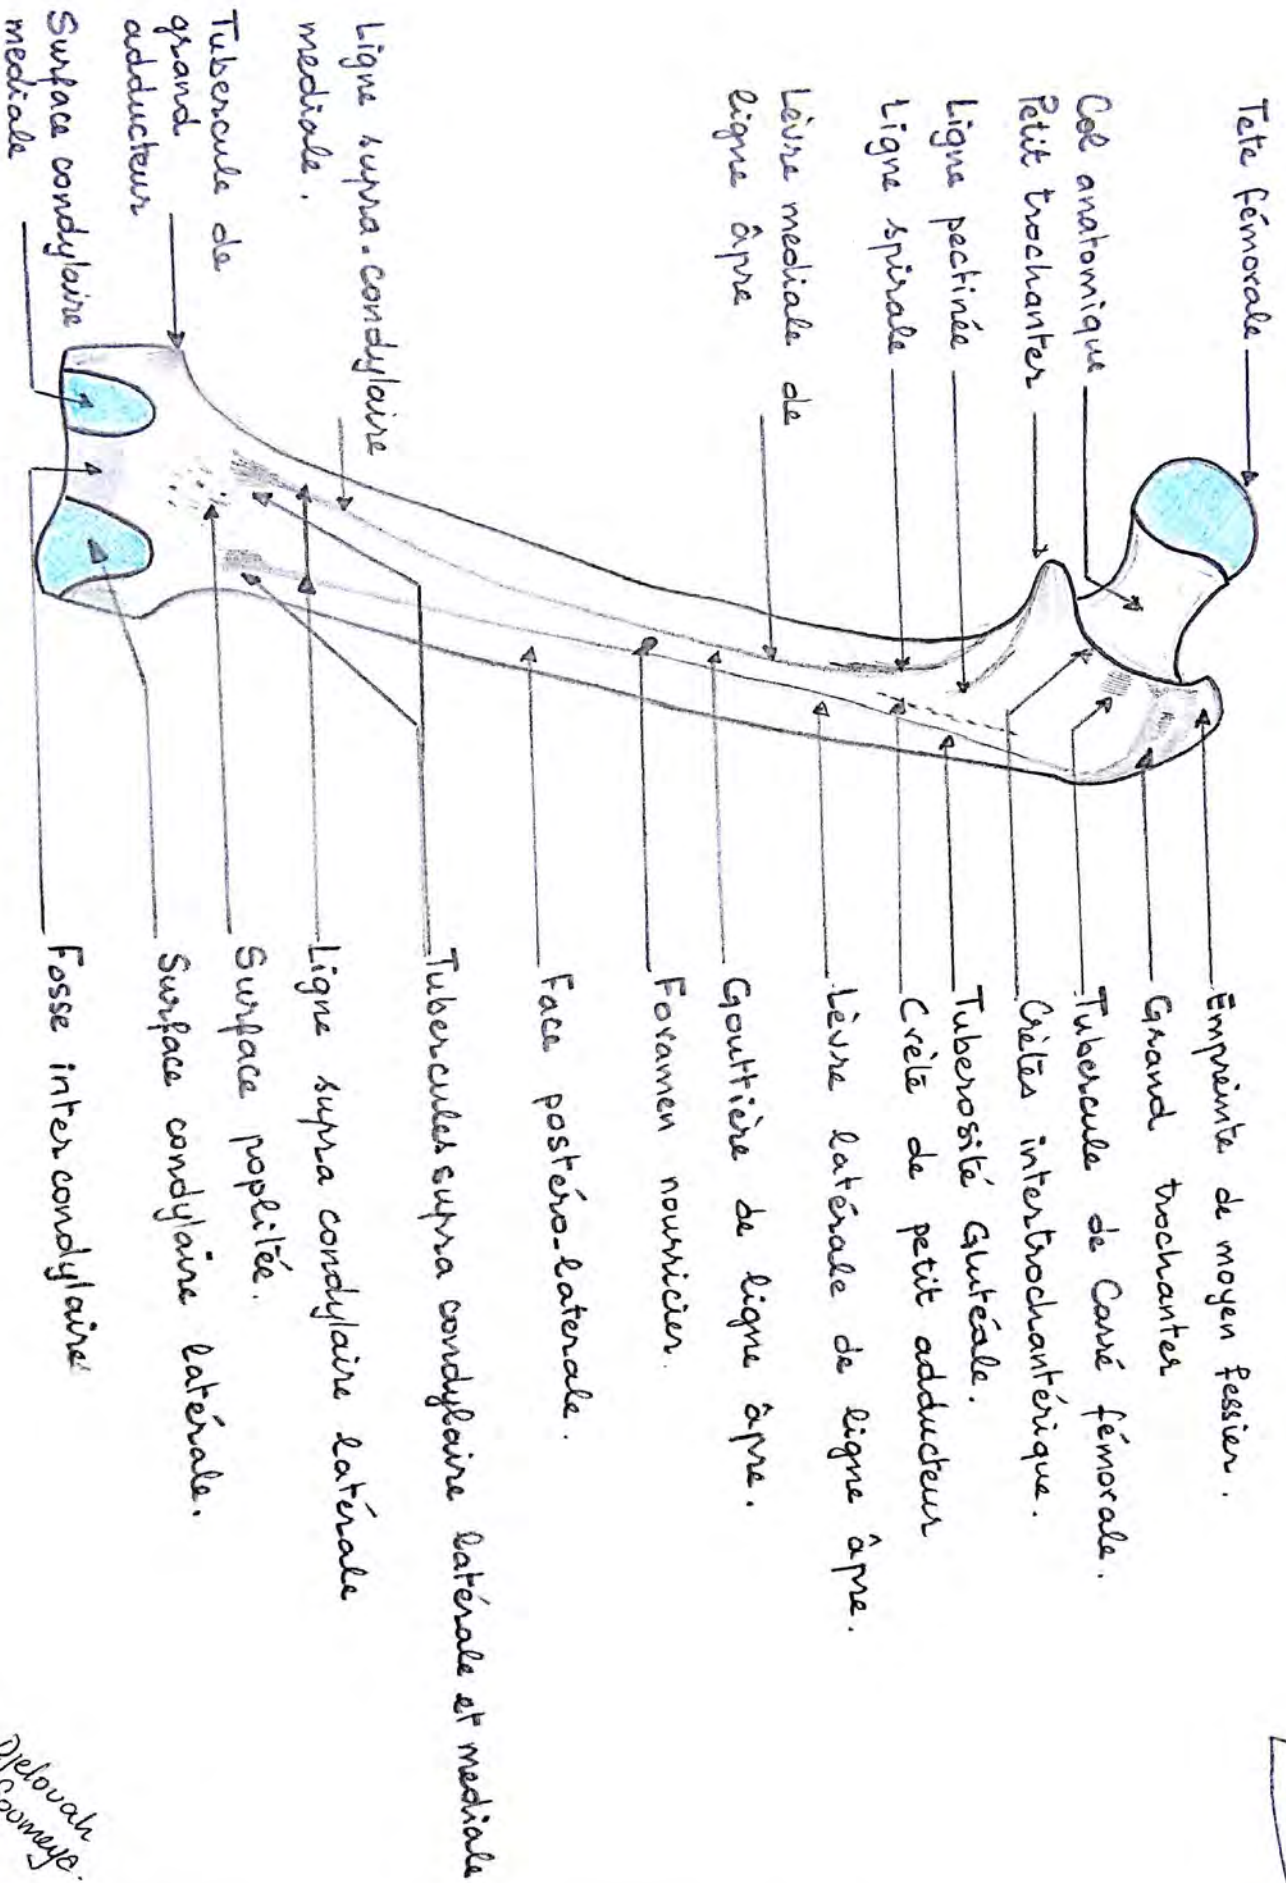 Tete fémorale
Col anatomique
Petit trochanter
Ligne pectinée
Ligne spirale
Lèvre mediale de
ligne âpre
Ligne supra-condylaire
mediale.
Tubercule de
grand
adducteur
Surface condylaire
mediale
Empreinte de moyen fessier.
Grand trochanter
Tubercule de Carré fémorale.
Crètes intertrochantérique.
Tuberosité Glutéale.
Crète de petit adducteur
Lèvre latérale de ligne âpre.
Gouttière de ligne âpre.
Foramen nourricier.
Face postéro-laterale.
Tubercules supra condylaire latérale et mediale
Ligne supra condylaire latérale
Surface poplitée.
Surface condylaire latérale.
Fosse intercondylaire
Djelouah
Soumeya.